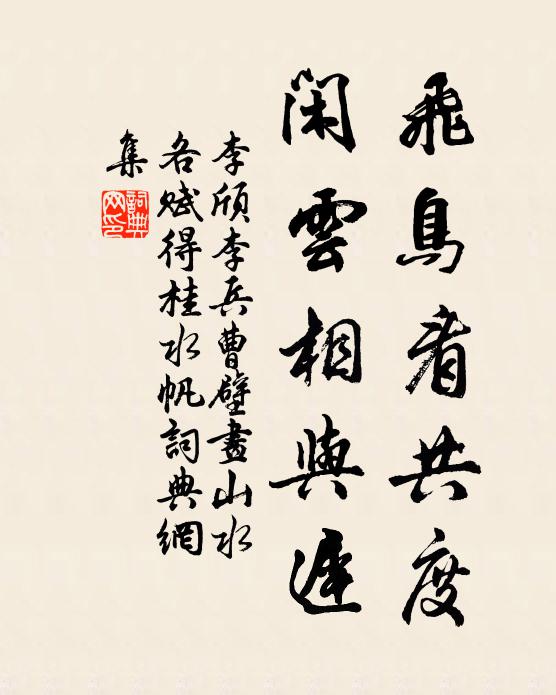 飛鳥看共度
閑雲相與遲
李頎李兵曹壁畫山水
各賦得桂水帆詞典網
集
詞典
网印